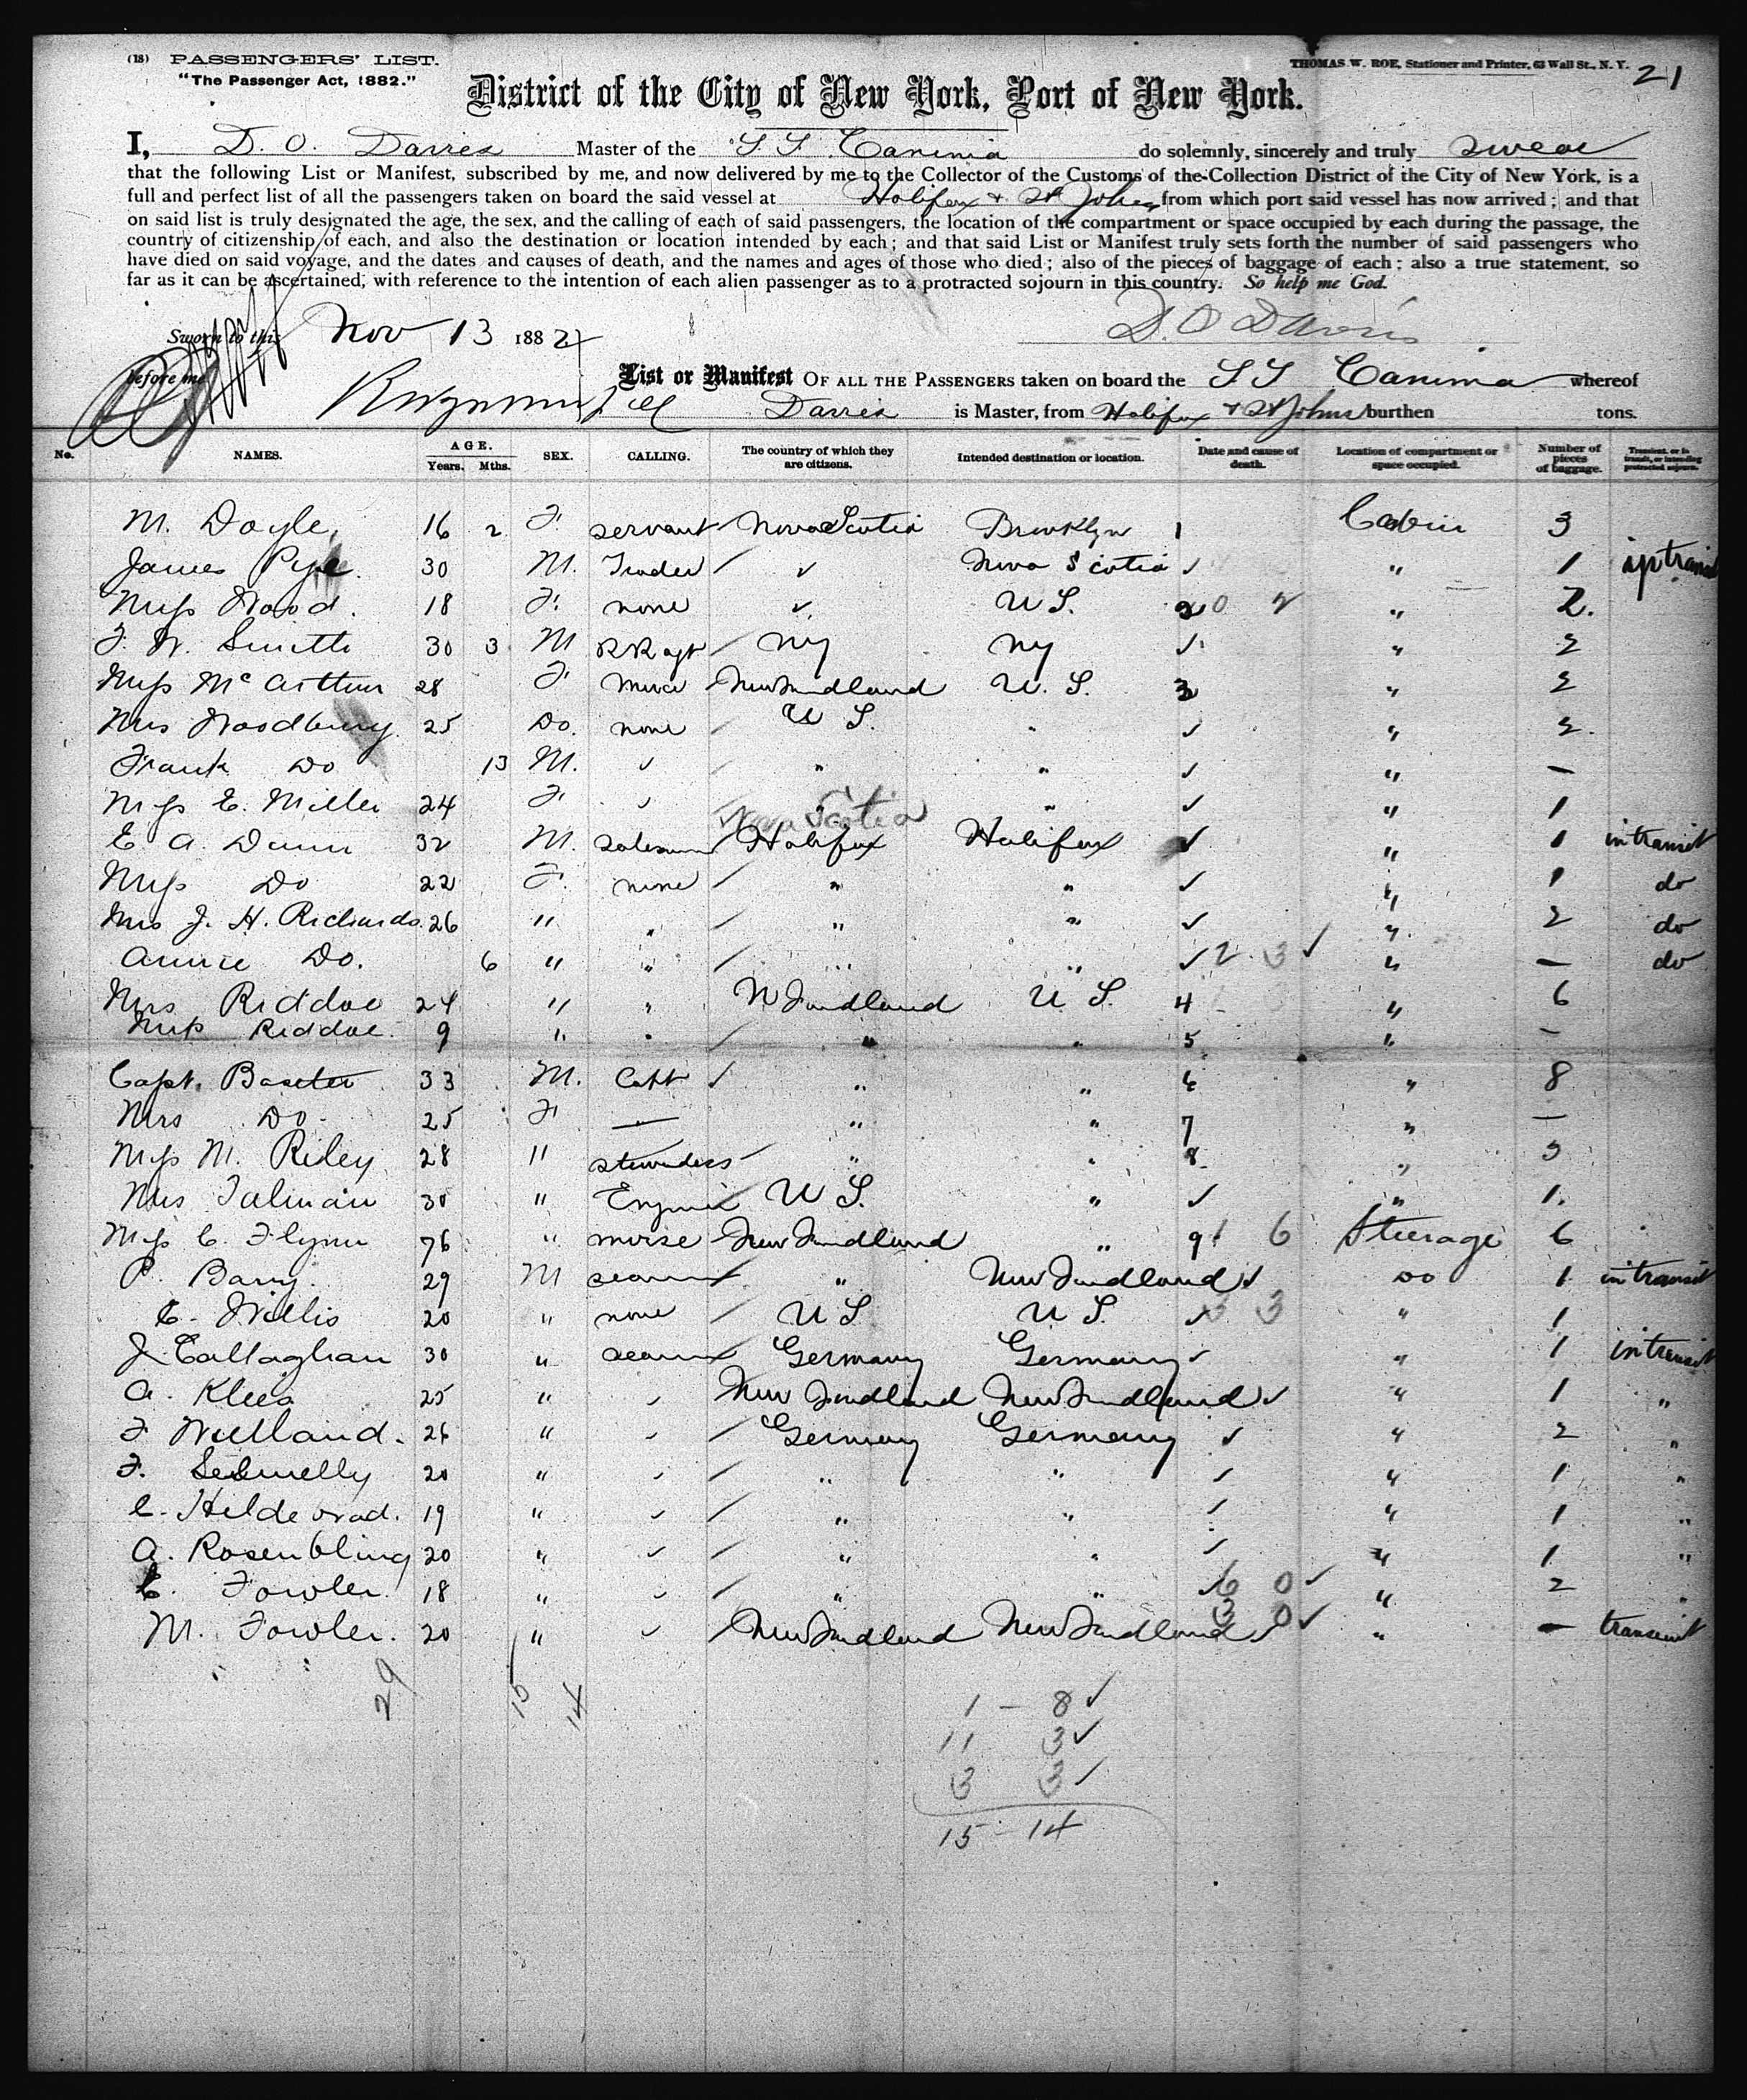 (18) PASSENGERS' LIST.
"The Passenger Act, 1882."
THOMAS W. ROE, Stationer and Printer, 63 Wall St., N. Y. 21
District of the City of New York, Port of New York.
I, D. O. Davies Master of the S S Canima do solemnly, sincerely and truly swear
that the following List or Manifest, subscribed by me, and now delivered by me to the Collector of the Customs of the Collection District of the City of New York, is a
full and perfect list of all the passengers taken on board the said vessel at Halifax + St Johns from which port said vessel has now arrived; and that
on said list is truly designated the age, the sex, and the calling of each of said passengers, the location of the compartment or space occupied by each during the passage, the
country of citizenship of each, and also the destination or location intended by each; and that said List or Manifest truly sets forth the number of said passengers who
have died on said voyage, and the dates and causes of death, and the names and ages of those who died; also of the pieces of baggage of each; also a true statement, so
far as it can be ascertained, with reference to the intention of each alien passenger as to a protracted sojourn in this country. So help me God.
D. O Davies
Sworn to this Nov 13 188
before me
List or Manifest OF ALL THE PASSENGERS taken on board the S S Canima whereof
Davies is Master, from Halifax + St Johns burthen tons.
No. NAMES. AGE. Years. Mths. SEX. CALLING. The country of which they are citizens. Intended destination or location. Date and cause of death. Location of compartment or space occupied. Number of pieces of baggage. Transient, or in transit, or intending protracted sojourn.
M. Doyle 16 2 F. servant Nova Scotia Brooklyn 1 Cabin 3
James Pye 30 M. Trader / ✓ Nova Scotia ✓ " 1 in transit
Miss Wood. 18 F. none ✓ U S. 2 0 " 2.
F. W. Smith 30 3 M RR agt / NY NY ✓ " 2
Miss McArthur 28 F Newfundland U. S. 3 " 2
Mrs Woodbury 25 Do. none / U S. " ✓ " 2.
Frank Do 13 M. ✓ / " " ✓ " —
Miss E. Miller 24 F. ✓ " " ✓ " 1
Nova Scotia
E A. Dunn 32 M. salesman Halifax Halifax ✓ " 1 in transit
Miss Do 22 F. none / " " ✓ " 1 do
Mrs J. H. Richards. 26 " " / " " ✓ " 2 do
Annie Do. 6 " " / " " ✓ 2 3 ✓ " — do
Mrs Riddoe 24 " " Nfundland U S. 4 " 6
Miss Riddoe 9 " " / " " 5 " —
Capt. Baxter 33 M. Capt ✓ " " 6 " 8
Mrs Do 25 F — " " 7 " —
Miss M. Riley 28 " stewardess " " 8 "
Mrs Talman 30 " U S. " ✓ " 1.
Miss C. Flynn 76 " nurse Newfundland " 9 6 Steerage 6
P. Barry. 29 M seaman " Newfundland ✓ Do 1 in transit
C. Willis 20 " none / U S. U S. ✓ 3 3 " 1
J. Callaghan 30 " seaman Germany Germany ✓ " 1 in transit
A. Klees 25 " ✓ Newfundland Newfundland ✓ " 1 "
F Welland. 26 " ✓ / Germany Germany ✓ " 2 "
F. 20 " ✓ / " " ✓ " 1 "
C. Hildebrad. 19 " ✓ / " " ✓ " 1 "
A. Rosenbling 20 " ✓ / " " ✓ " 1 "
C. Fowler. 18 " ✓ / " " ✓ 6 0 ✓ " 2 "
M. Fowler. 20 " ✓ / Newfundland Newfundland ✓ 3 0 ✓ " —
29 15 14
1 - 8 ✓
11 3 ✓
3 3 ✓
15 - 14